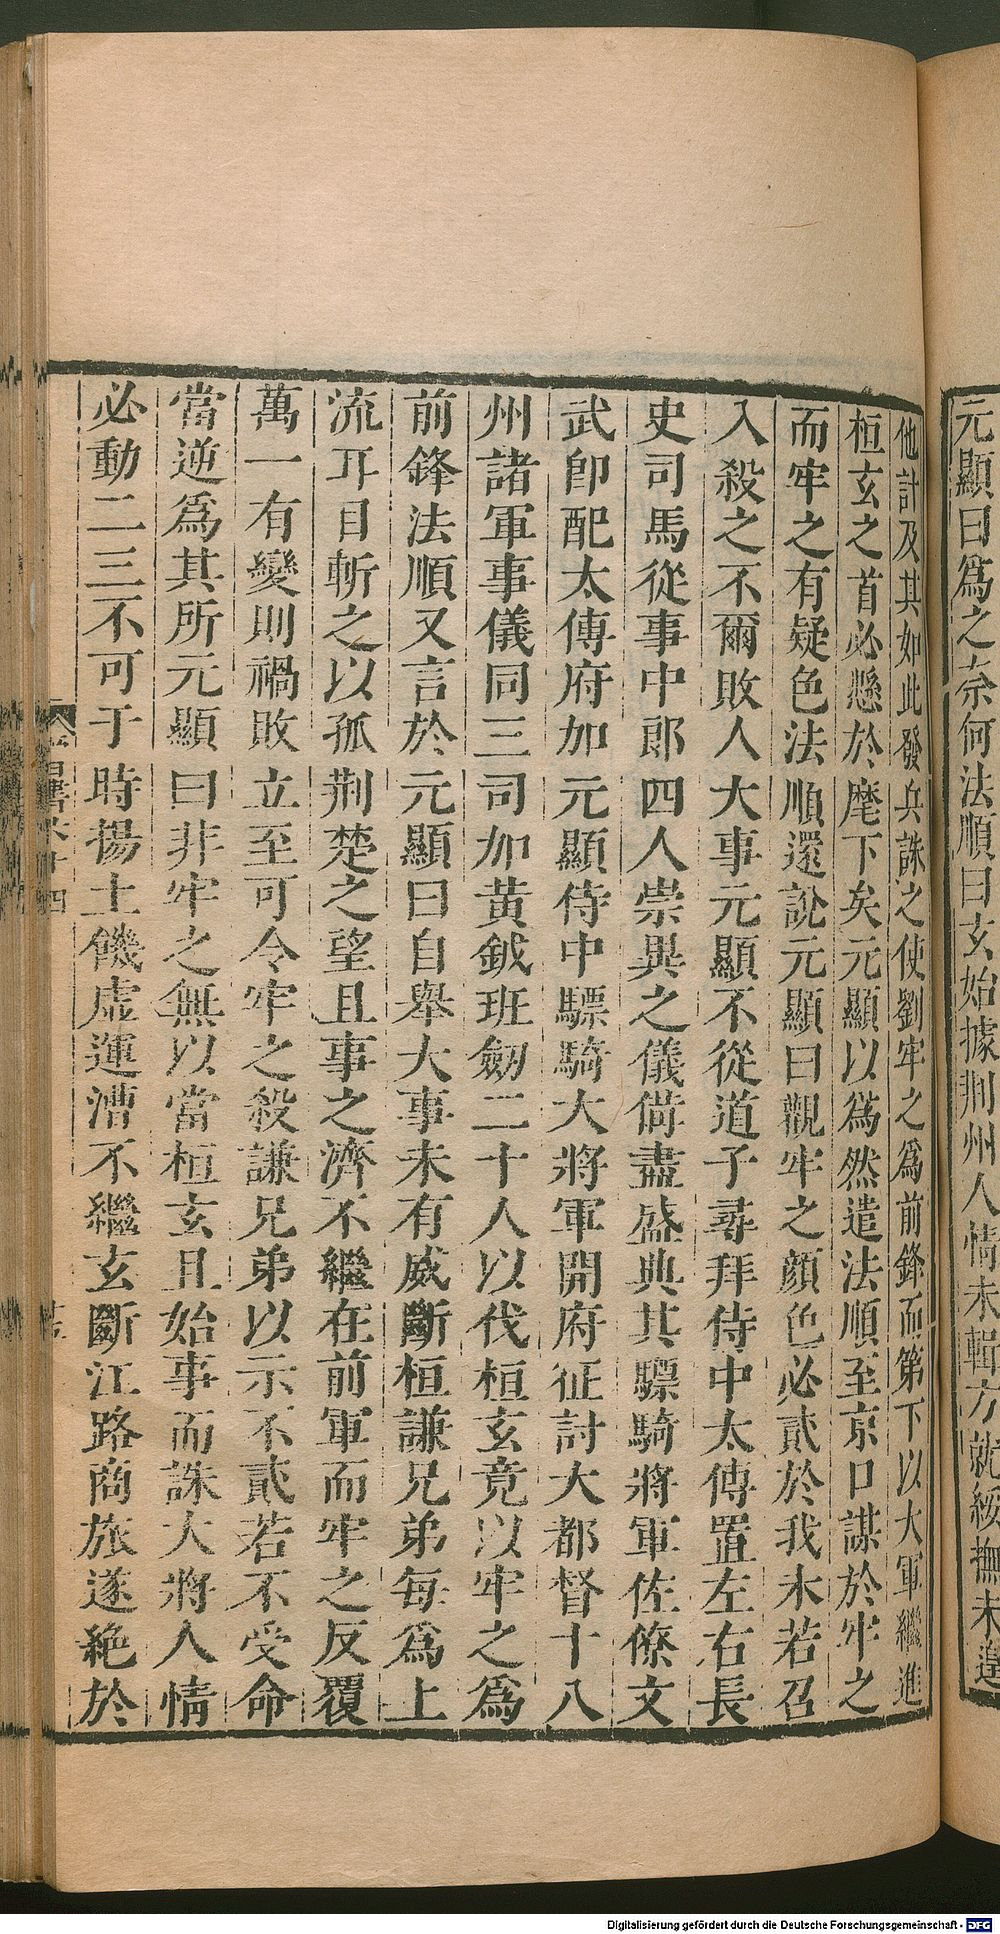 元顯曰爲之奈何法順曰玄始據荆州人情未輯方就綏撫未遑
他計及其如此發兵誅之使劉牢之爲前鋒而第下以大軍繼進
桓玄之首必懸於麾下矣元顯以爲然遣法順至京口謀於牢之
而牢之有疑色法順還說元顯曰觀牢之顔色必貳於我未若召
入殺之不爾敗人大事元顯不從道子尋拜侍中太傅置左右長
史司馬從事中郎四人崇異之儀備盡盛典其驃騎將軍佐僚文
武卽配太傅府加元顯侍中驃騎大將軍開府征討大都督十八
州諸軍事儀同三司加黄鉞班劒二十人以伐桓玄竟以牢之爲
前鋒法順又言於元顯曰自舉大事未有威斷桓謙兄弟每爲上
流耳目斬之以孤荆楚之望且事之濟不繼在前軍而牢之反覆
萬一有變則禍敗立至可令牢之殺謙兄弟以示不貳若不受命
當逆爲其所元顯曰非牢之無以當桓玄且始事而誅大將人情
必動二三不可于時揚土饑虛運漕不繼玄斷江路商旅遂絶於
Digitalisierung gefördert durch die Deutsche Forschungsgemeinschaft - DFG